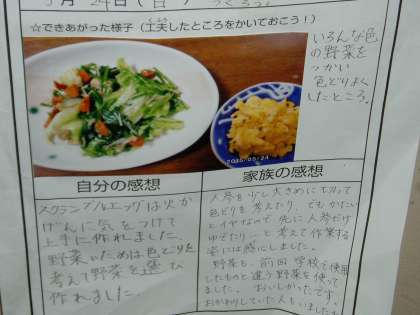 5月24日(日)
☆できあがった様子(工夫したところをかいておこう!)
いろんな色
の野菜を
つかい
色どりよく
したところ。
2015/05/24
自分の感想
スクランブルエッグは火か
げんに気をつけて
上手に作れました。
野菜いためは色どりを
考えて野菜を選び
作れました。
家族の感想
人参を少し大きめに切って
色どりを考えたり、でもかたい
とイヤなので先に人参だけ
ゆでたり…と考えて作業する
姿には感心しました。
野菜も、前回学校で使用
したものと違う野菜を使って
ました。おいしかったです。
おかわりしていた人もいました